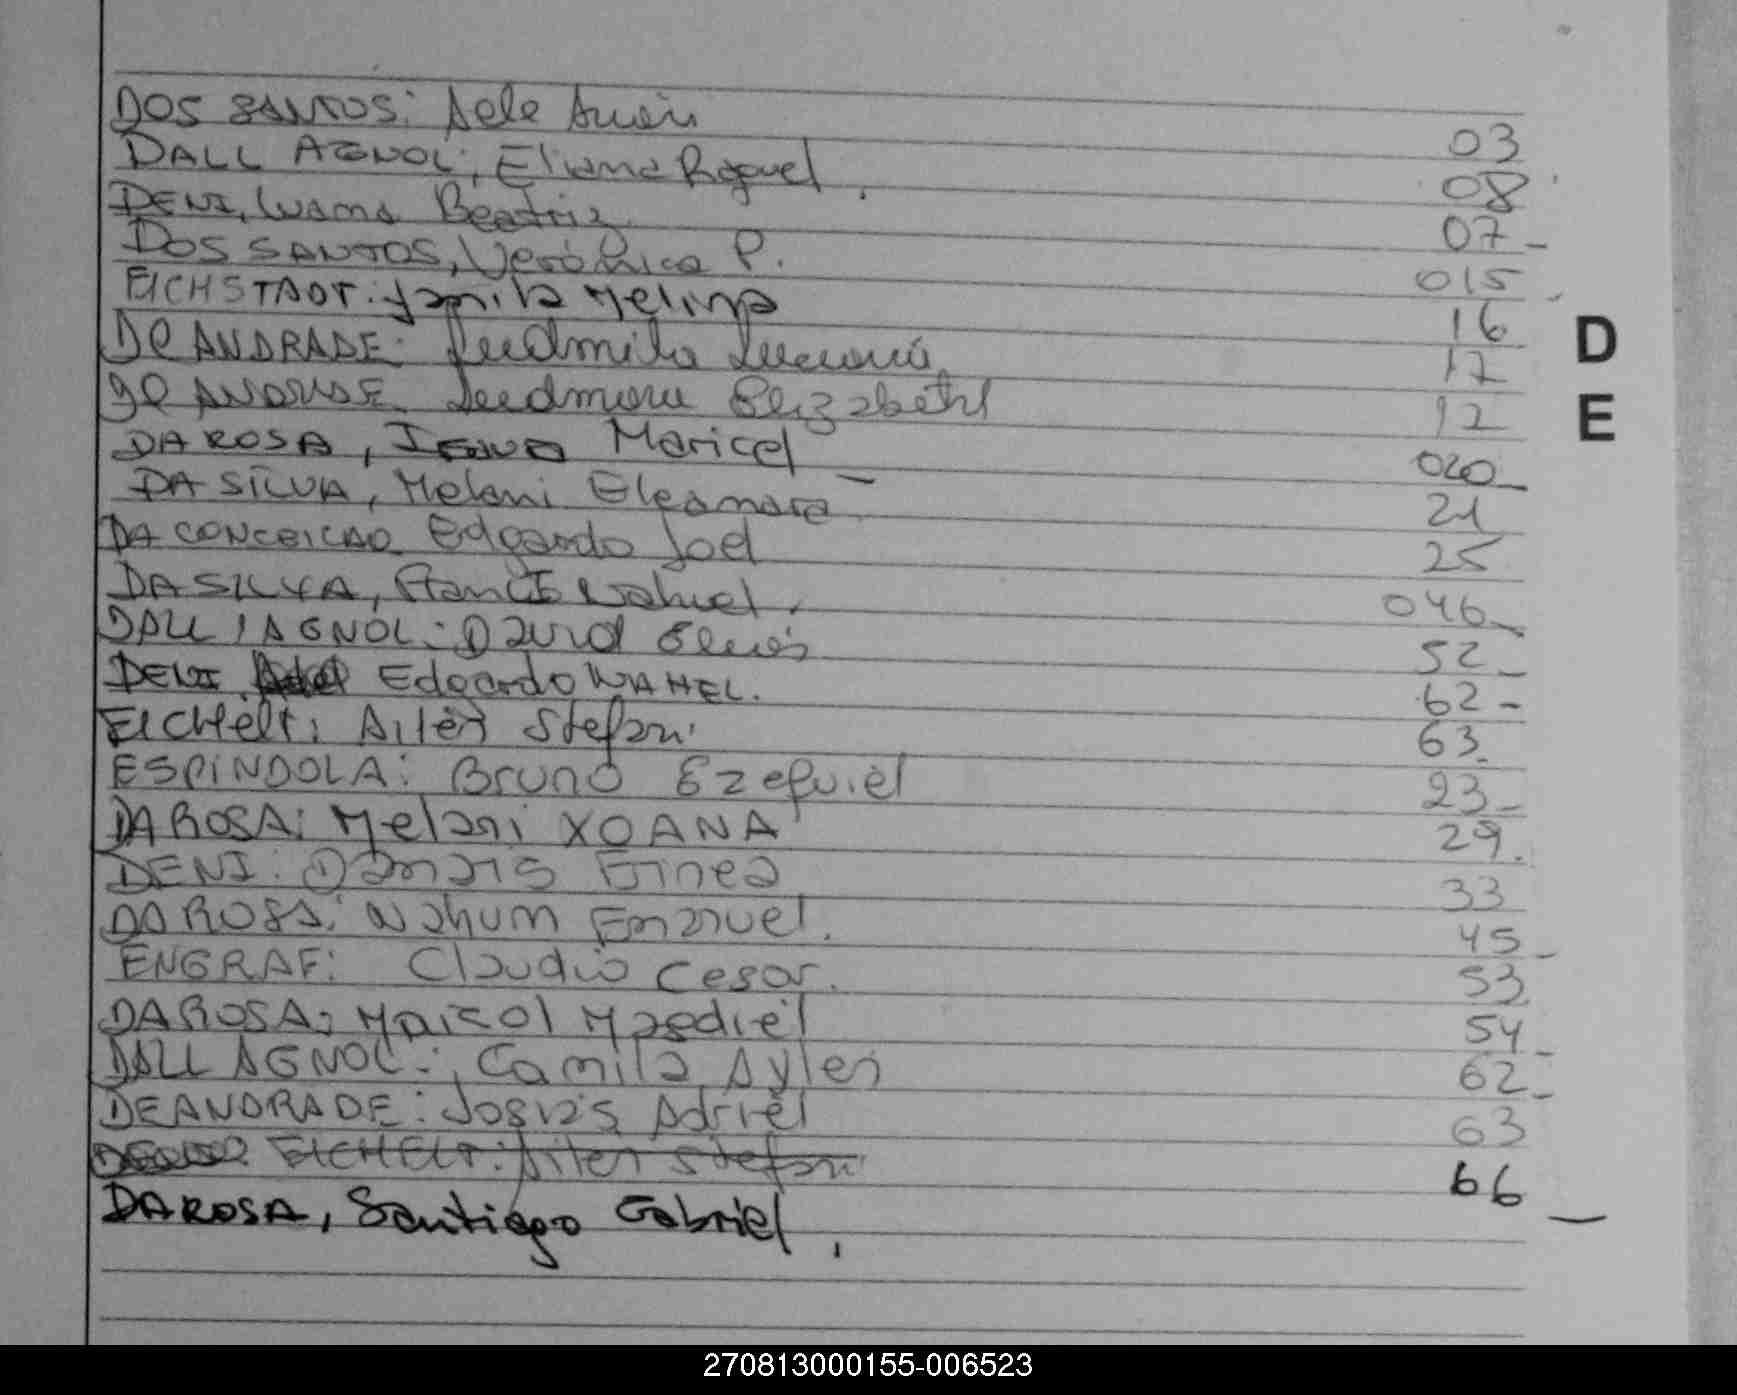 DOS SANTOS: 03
DALL AGNOL, Eliana Raquel. 08
DENI, Beatriz 07-
DOS SANTOS, Verónica P. 015
EICHSTADT: Yamila Melina 16
De ANDRADE: Ludmila Luciana 17
De ANDRADE Elizabeth 12
DA ROSA, Maricel 020-
DA SILVA, Melani Eleamara 21
DA CONCEICAO Edgardo Joel 25
DA SILVA, Nahuel. 046-
DALL'AGNOL: David 52-
DENI Edgardo NAHEL. 62-
EICHELT: Ailén Stefani 63
ESPINDOLA: Bruno Ezequiel 23-
DA ROSA: Melani XOANA 29.
DENI: Damaris 33
DA ROSA: Nahum Emanuel. 45-
ENGRAF: Claudio Cesar. 53
DA ROSA: Maicol 54-
DALL AGNOL: Camila Aylen 62-
DE ANDRADE: Josias Adriel 63
EICHELT: Ailen Stefani
DA ROSA, Santiago Gabriel, 66-
D
E
270813000155-006523